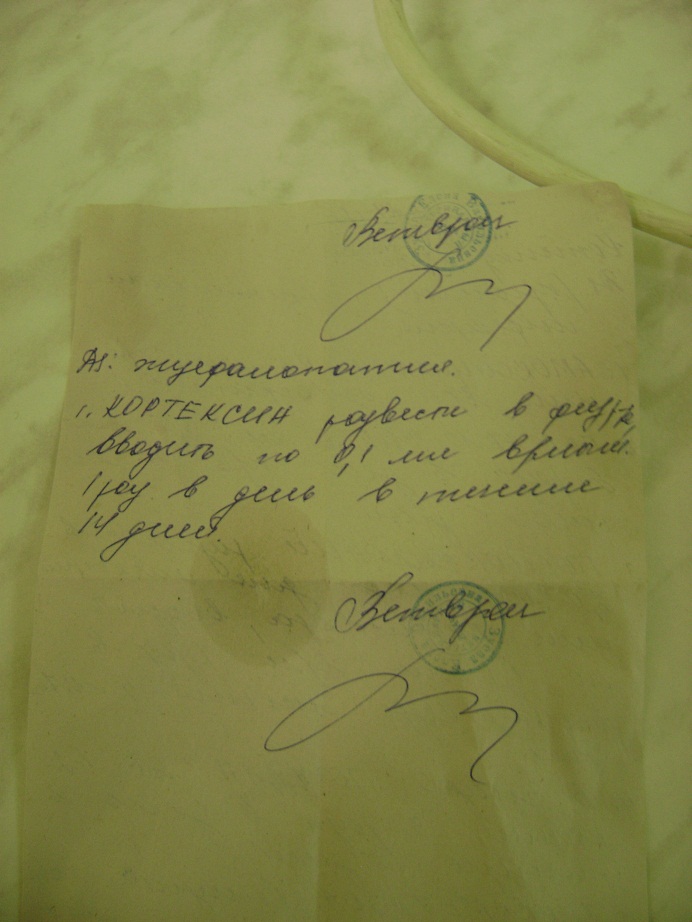 Ветврач
Ds: энцефалопатия.
1. КОРТЕКСИН развести в физ р-ре
вводить по 0,1 мл в/мыш.
1 раз в день в течение
14 дней.
Ветврач